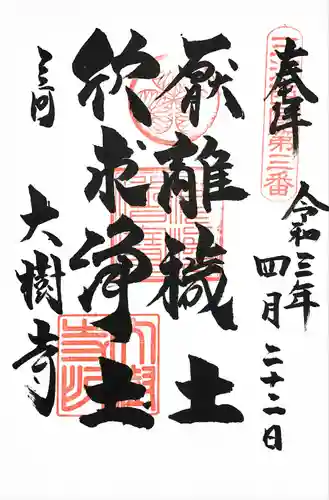 奉拝
令和三年
四月二十二日
厭離穢土
欣求浄土
三河
大樹寺
第三番